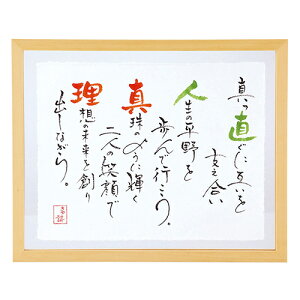 真っ直ぐに互いを
支え合い
人生の平野を
歩んで行こう。
真珠のように輝く
二人の笑顔で
理想の未来を創り
出しながら。